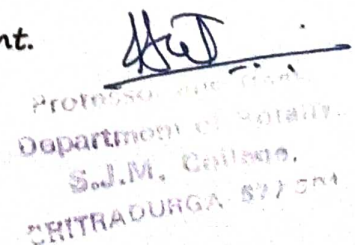 nt.
Professor and Head
Department of Botany,
S.J.M. College,
CHITRADURGA 577 501